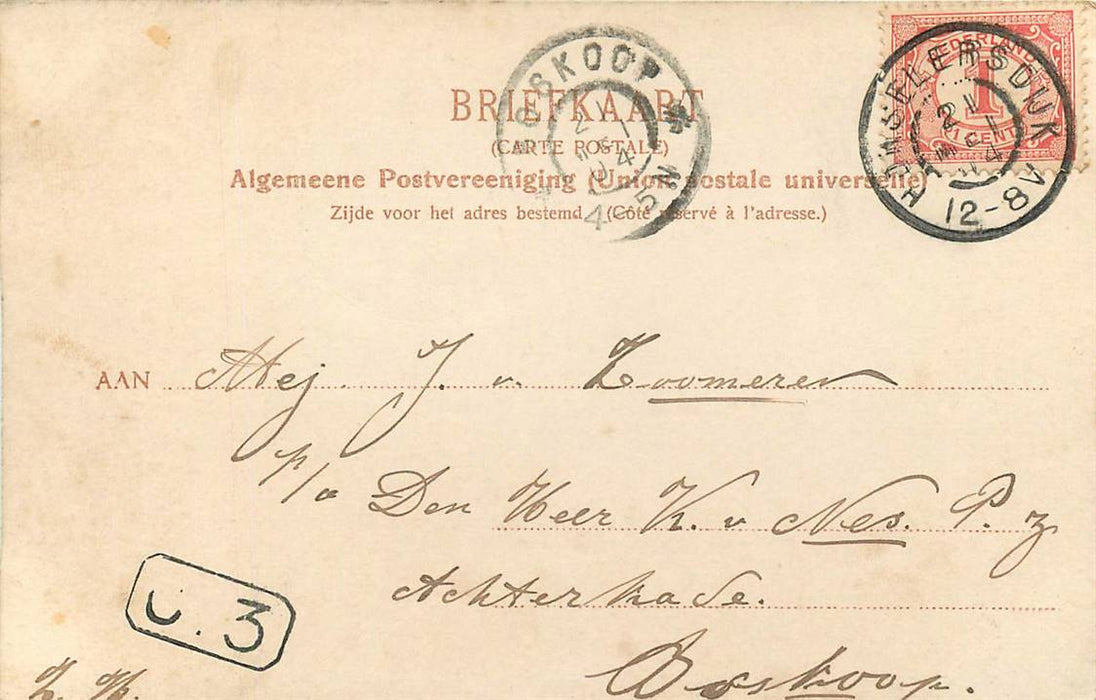 BRIEFKAART
(CARTE POSTALE)
Algemeene Postvereeniging (Union postale universelle)
Zijde voor het adres bestemd. (Côté réservé à l'adresse.)
BOSKOOP
21
04
4-5N
NEDERLAND
1
1 CENT
21
12-8V
AAN Mej. J. v. Zoomeren
p/a Den Heer K. v. Nes. P. z
Achterkade.
Boskoop.
3
Z. H.